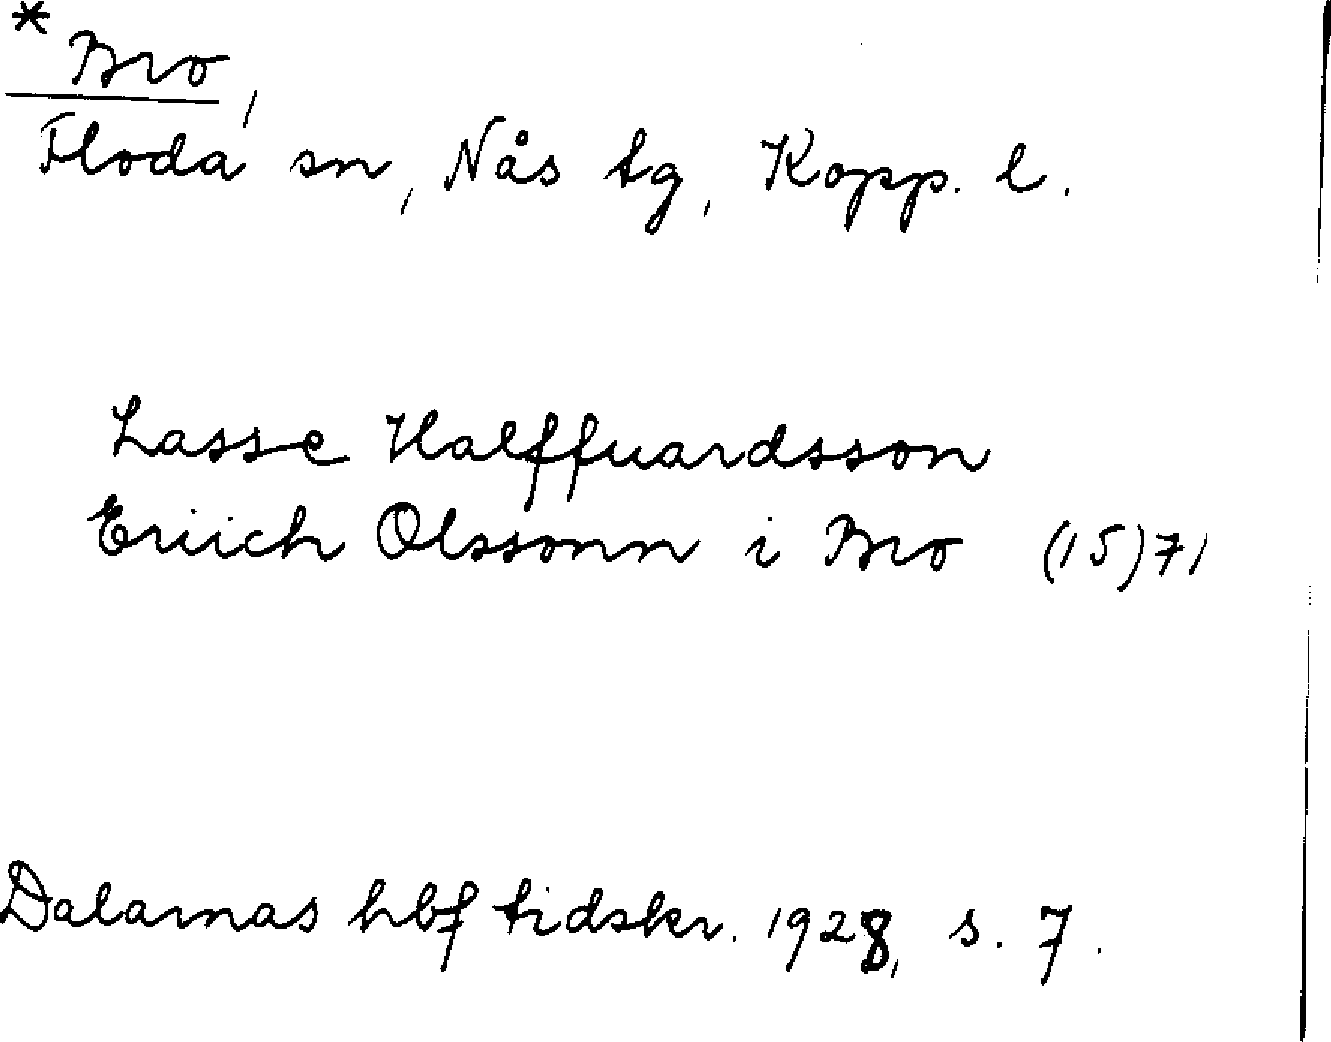 * Bro,
Floda sn, Nås tg, Kopp. l.
Lasse Halffuardsson
Eriich Olssonn i Bro (15)71
Dalarnas hbf tidskr. 1928, s. 7.